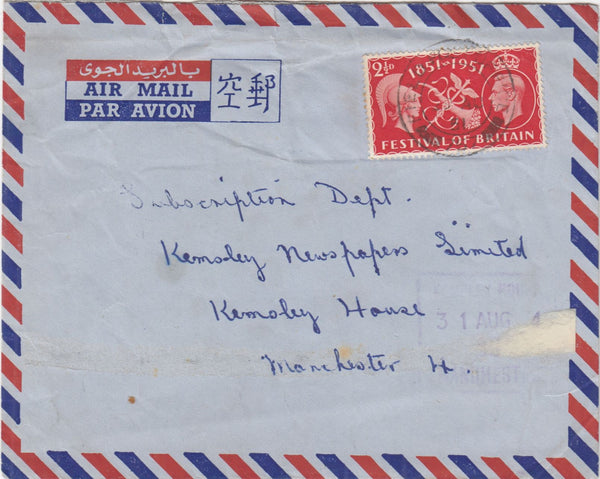 بالبريد الجوى
AIR MAIL
PAR AVION
空郵
2½D
1851-1951
FESTIVAL OF BRITAIN
Subscription Dept.
Kemsley Newspapers Limited
Kemsley House
Manchester 4.
31 AUG